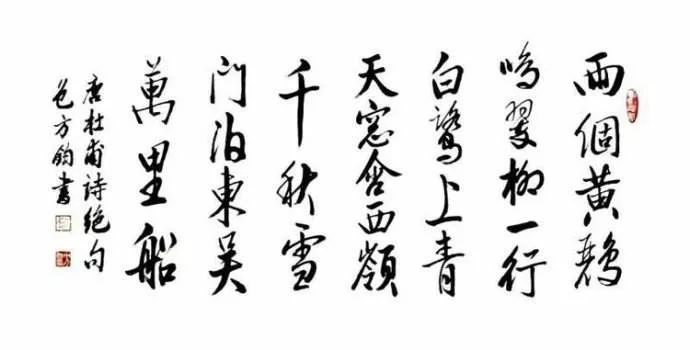 兩個黄鸝
鳴翠柳一行
白鷺上青
天窓含西嶺
千秋雪
門泊東吴
萬里船
唐杜甫詩絶句
方鈞書